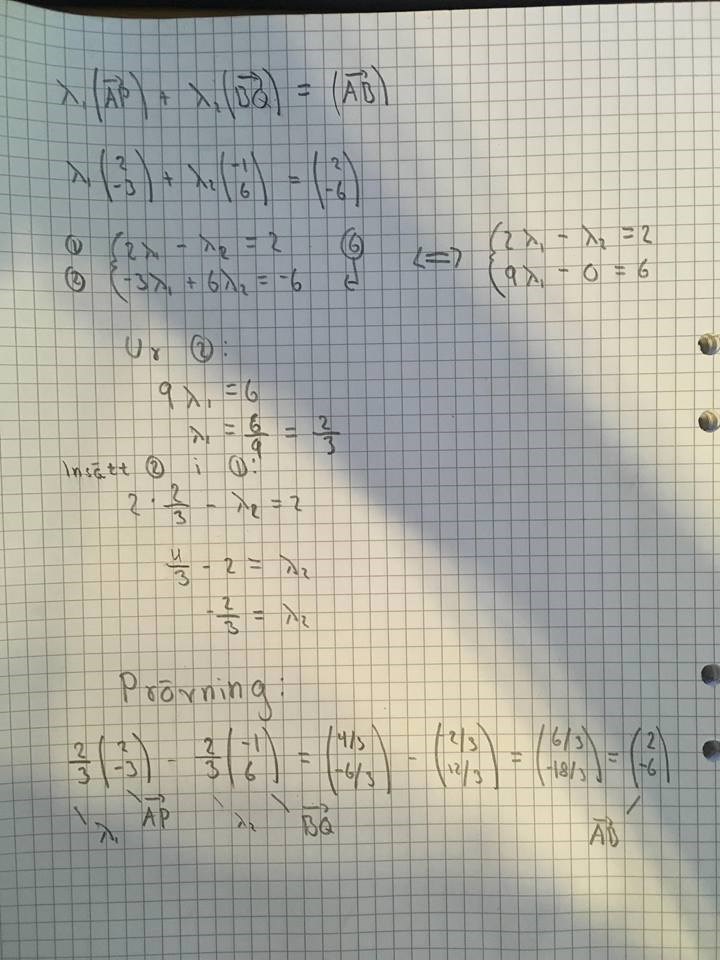 λ₁(AP⃗) + λ₁(BQ⃗) = (AB⃗)
λ₁(2 -3) + λ₂(-1 6) = (2 -6)
① {2λ₁ - λ₂ = 2 ⑥ <=> {2λ₁ - λ₂ = 2
② {-3λ₁ + 6λ₂ = -6 {9λ₁ - 0 = 6
Ur ②:
9λ₁ = 6
λ₁ = 6/9 = 2/3
Insätt ② i ①:
2 · 2/3 - λ₂ = 2
4/3 - 2 = λ₂
-2/3 = λ₂
Prövning:
2/3 (2 -3) - 2/3 (-1 6) = (4/3 -6/3) - (2/3 12/3) = (6/3 -18/3) = (2 -6)
λ₁ AP⃗ λ₂ BQ⃗ AB⃗